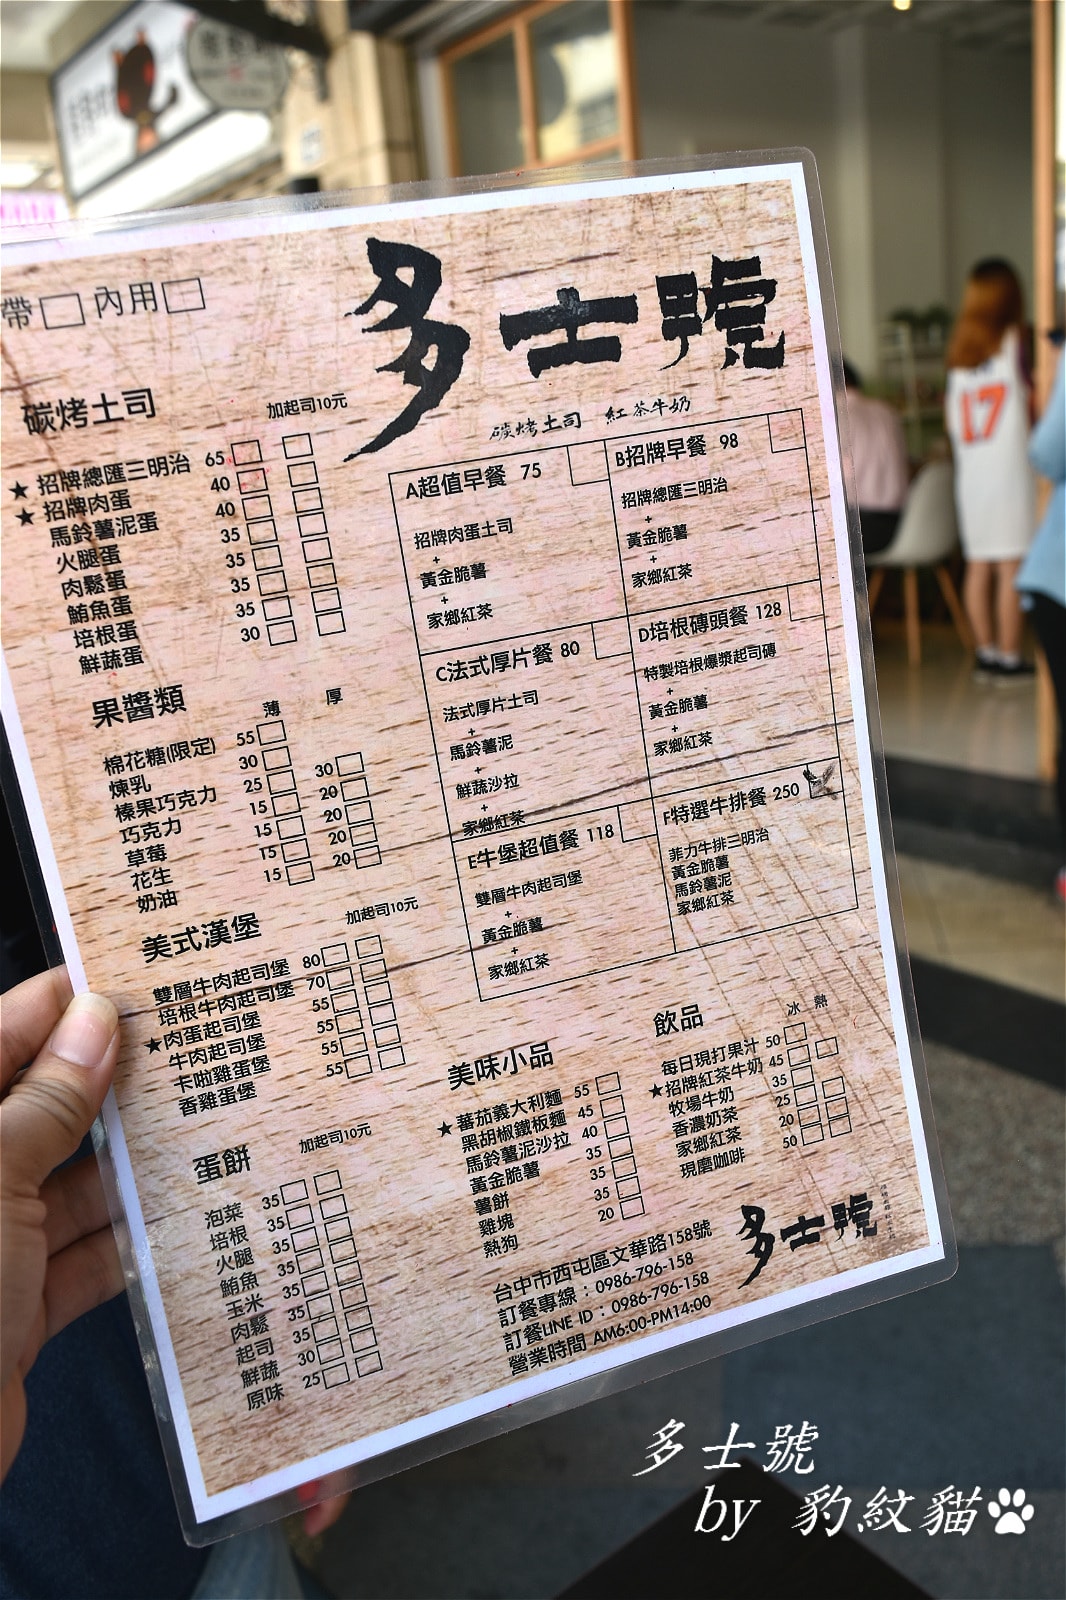 帶□ 內用□
多士號
碳烤土司 紅茶牛奶
碳烤土司 加起司10元
★招牌總匯三明治 65
★招牌肉蛋 40
馬鈴薯泥蛋 40
火腿蛋 35
肉鬆蛋 35
鮪魚蛋 35
培根蛋 35
鮮蔬蛋 30
果醬類 薄 厚
棉花糖(限定) 55
煉乳 30
榛果巧克力 25 30
巧克力 15 20
草莓 15 20
花生 15 20
奶油 15 20
美式漢堡 加起司10元
雙層牛肉起司堡 80
培根牛肉起司堡 70
★肉蛋起司堡 55
牛肉起司堡 55
卡啦雞蛋堡 55
香雞蛋堡 55
蛋餅 加起司10元
泡菜 35
培根 35
火腿 35
鮪魚 35
玉米 35
肉鬆 35
起司 35
鮮蔬 30
原味 25
A超值早餐 75
招牌肉蛋土司
+
黃金脆薯
+
家鄉紅茶
B招牌早餐 98
招牌總匯三明治
+
黃金脆薯
+
家鄉紅茶
C法式厚片餐 80
法式厚片土司
+
馬鈴薯泥
+
鮮蔬沙拉
+
家鄉紅茶
D培根磚頭餐 128
特製培根爆漿起司磚
+
黃金脆薯
+
家鄉紅茶
E牛堡超值餐 118
雙層牛肉起司堡
+
黃金脆薯
+
家鄉紅茶
F特選牛排餐 250
菲力牛排三明治
黃金脆薯
馬鈴薯泥
家鄉紅茶
美味小品
★蕃茄義大利麵 55
黑胡椒鐵板麵 45
馬鈴薯泥沙拉 40
黃金脆薯 35
薯餅 35
雞塊 35
熱狗 20
飲品 冰 熱
每日現打果汁 50
★招牌紅茶牛奶 45
牧場牛奶 35
香濃奶茶 25
家鄉紅茶 20
現磨咖啡 50
多士號
台中市西屯區文華路158號
訂餐專線：0986-796-158
訂餐LINE ID：0986-796-158
營業時間 AM6:00-PM14:00
多士號
by 豹紋貓